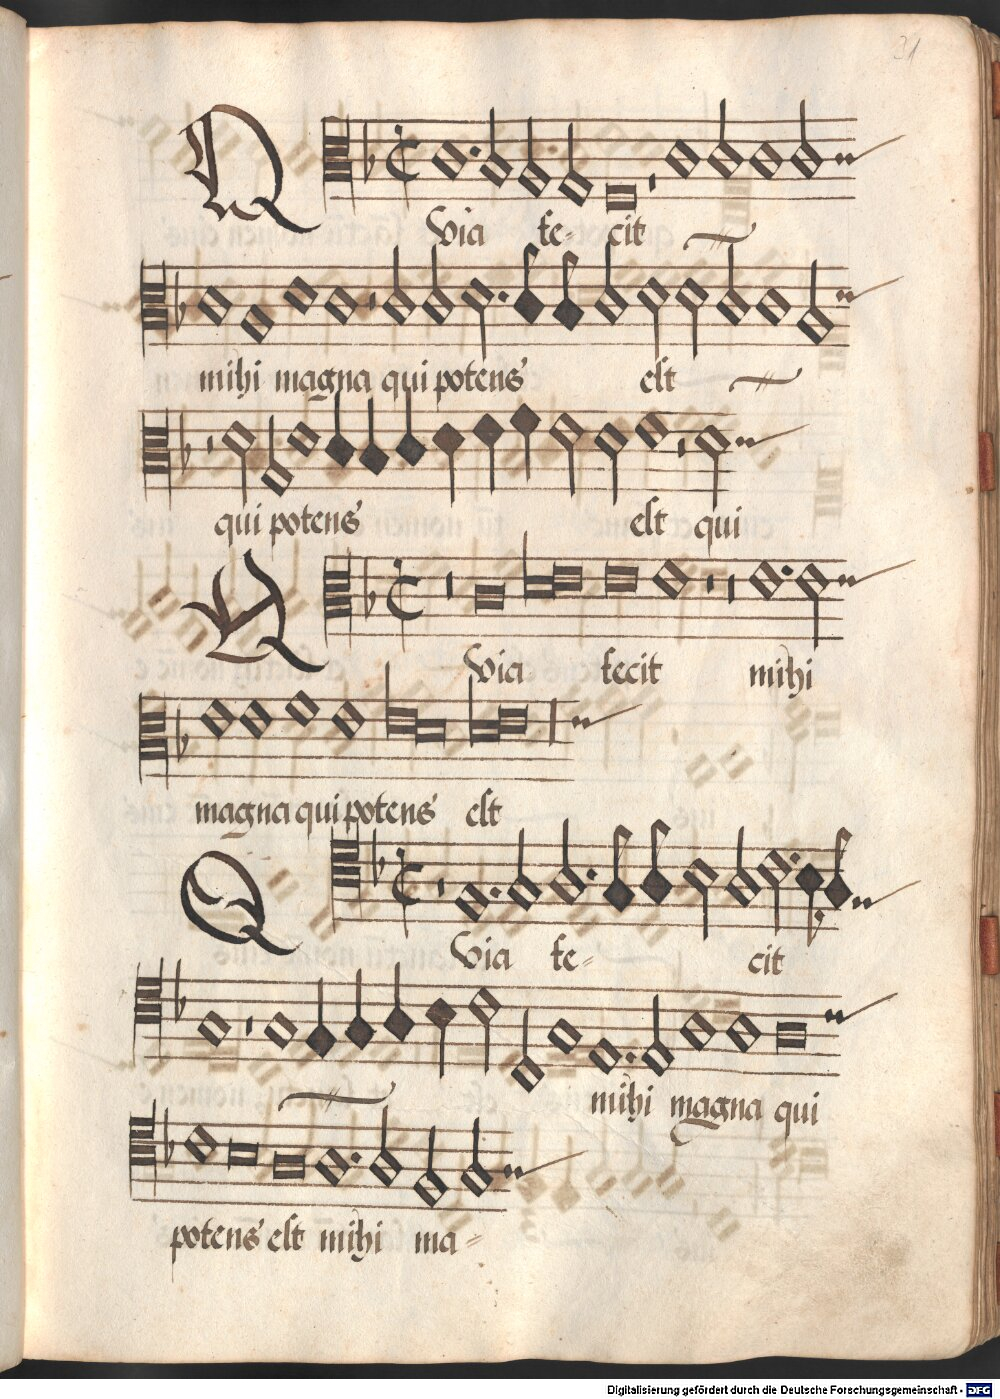 31
Quia fe- cit
mihi magna qui potens est
qui potens est qui
Quia fecit mihi
magna qui potens est
Quia fe- cit
mihi magna qui
potens est mihi ma-
Digitalisierung gefördert durch die Deutsche Forschungsgemeinschaft - DFG